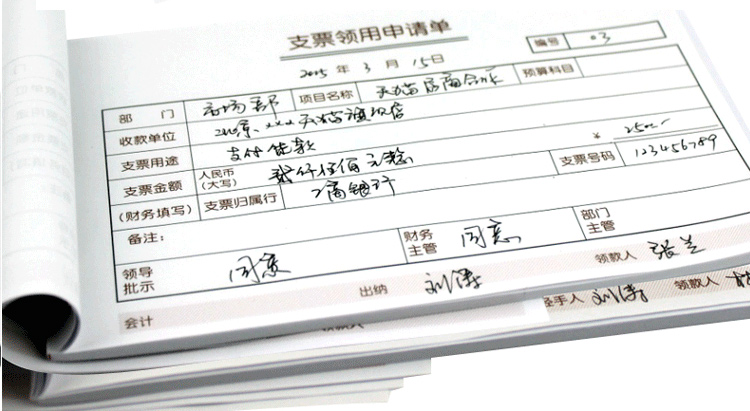 支票领用申请单
编号 03
2015 年 3 月 15 日
部 门 市场部 项目名称 天猫店商合作 预算科目
收款单位 天猫旗舰店
支票用途 支付货款
支票金额 人民币(大写) 贰仟伍佰元整 ¥ 2500
(财务填写) 支票归属行 工商银行 支票号码 123456789
备注:
领导批示 同意 财务主管 同意 部门主管
会计 出纳 刘涛 领款人 张兰
经手人 刘涛 领款人